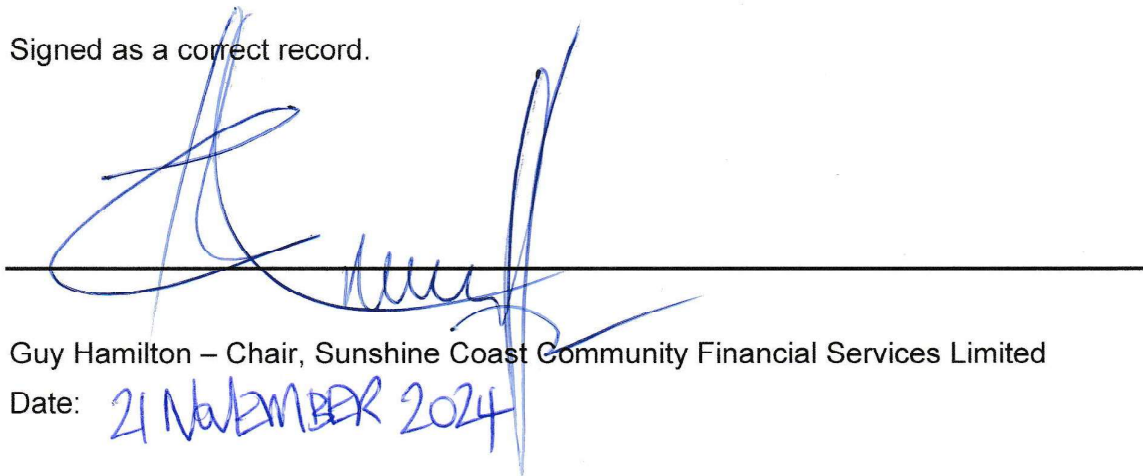 Signed as a correct record.
Guy Hamilton – Chair, Sunshine Coast Community Financial Services Limited
Date: 21 NOVEMBER 2024